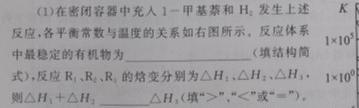 (1)在密闭容器中充入1-甲基萘和H₂发生上述
反应,各平衡常数与温度的关系如右图所示。反应体系
中最稳定的有机物为____________(填结构简
式),反应R₁、R₂、R₃的焓变分别为△H₁、△H₂、△H₃,
则△H₁+△H₂______△H₃(填“>”、“<”或“=”)。
K
1×10⁵
1×10⁰